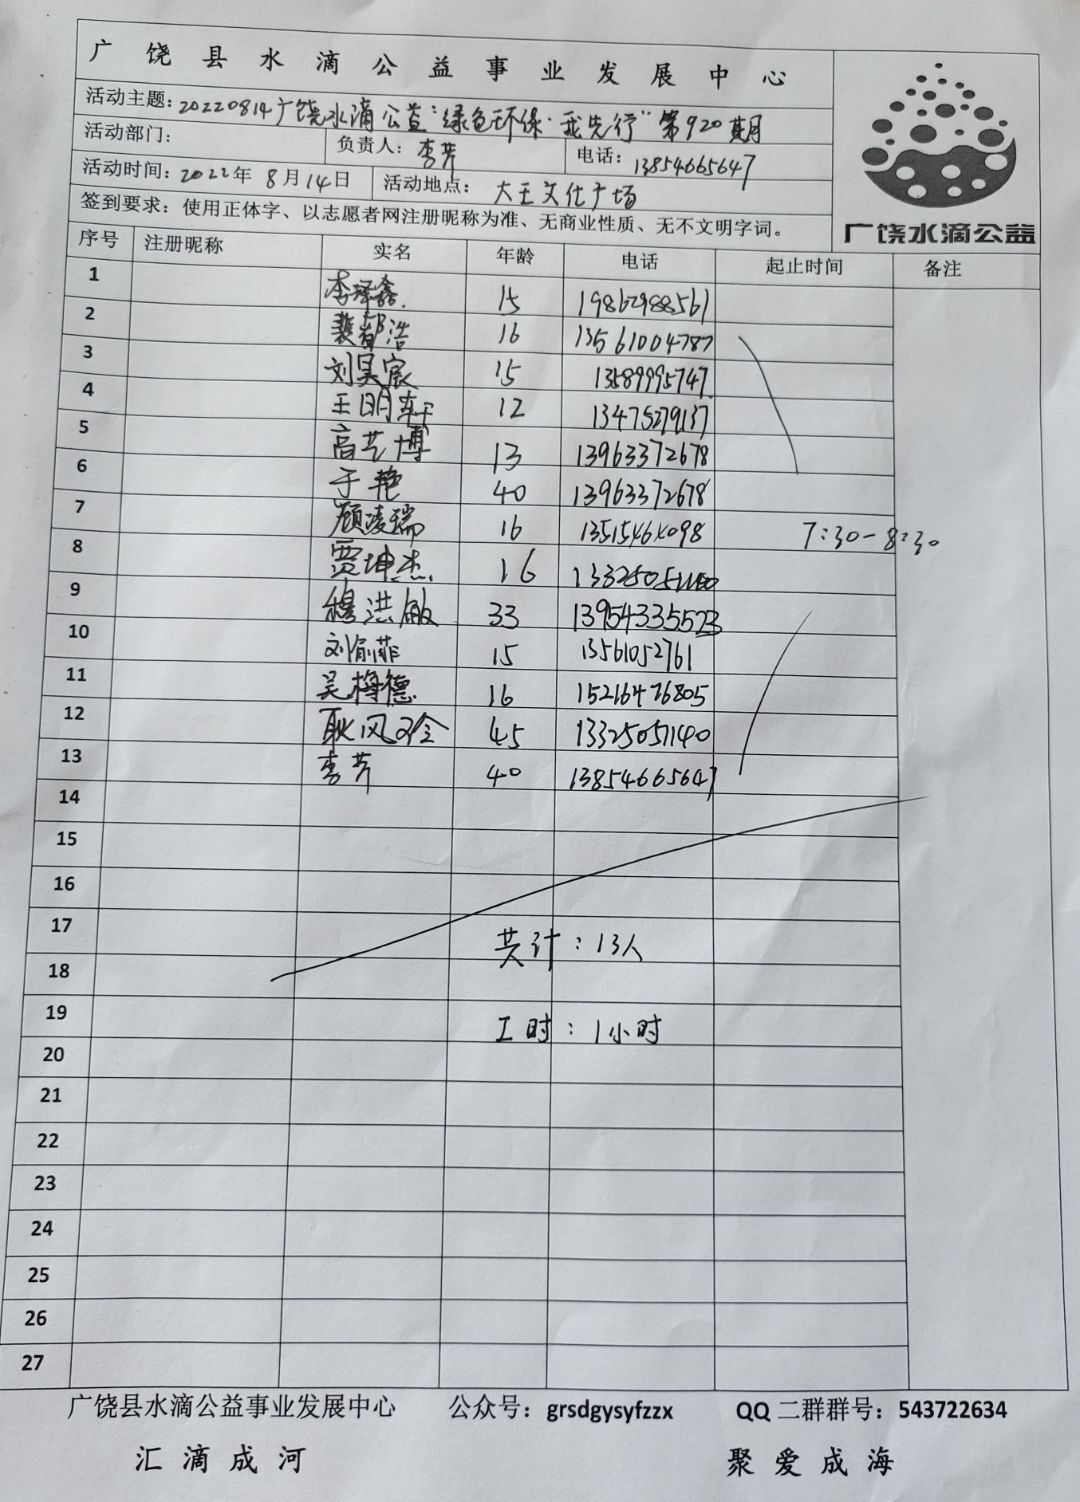 广饶县水滴公益事业发展中心
活动主题：20220814广饶水滴公益"绿色环保·我先行"第920期
活动部门： 负责人：李芳 电话：13854665647
活动时间：2022年8月14日 活动地点：大王文化广场
签到要求：使用正体字、以志愿者网注册昵称为准、无商业性质、无不文明字词。
广饶水滴公益
序号 注册昵称 实名 年龄 电话 起止时间 备注
1 李泽鑫 15 19862988561
2 裴都浩 16 13561004787
3 刘昊宸 15 13589995747
4 王明轩 12 13475279137
5 高艺博 13 13963372678
6 于艳 40 13963372678
7 顾凌瑞 16 13515464098 7:30-8:30
8 贾坤杰 16
9 穆洪敏 33 13954335523
10 刘俞菲 15 13561052761
11 吴梅德 16 15216476805
12 耿风玲 45 13325051140
13 李芳 40 13854665647
14
15
16
17 共计：13人
18
19 工时：1小时
20
21
22
23
24
25
26
27
广饶县水滴公益事业发展中心 公众号：grsdgysyfzzx QQ二群群号：543722634
汇滴成河 聚爱成海